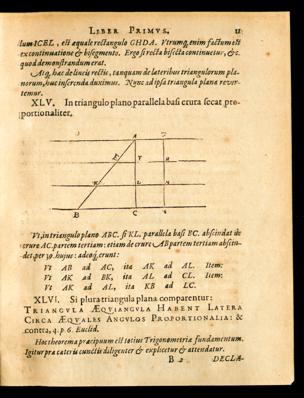 LIBER PRIMVS. 11
tum ICEL, est æquale rectangulo GHDA. Vtrumq; enim factum est
ex continuatione & bisegmento. Ergo si recta bisecta continuetur, &c.
quod demonstrandum erat.
Atq; hæc de lineis rectis, tanquam de lateribus triangulorum pla-
norum, huc inserenda duximus. Nunc ad ipsa triangula plana rever-
temur.
XLV. In triangulo plano parallela basi crura secat pro-
portionaliter.
A
K L
B C
Vt, in triangulo plano ABC. si KL. parallela basi BC. abscindat de
crure AC. partem tertiam: etiam de crure AB partem tertiam abscin-
det, per 39. hujus: adeoq; erunt:
Vt AB ad AC, ita AK ad AL. Item:
Vt AK ad BK, ita AL ad CL. Item:
Vt AK ad AL, ita KB ad LC.
XLVI. Si plura triangula plana comparentur:
TRIANGVLA ÆQVIANGVLA HABENT LATERA
CIRCA ÆQVALES ANGVLOS PROPORTIONALIA: &
contra, 4. p. 6. Euclid.
Hoc theorema præcipuum est totius Trigonometriæ fundamentum.
Igitur præ cæteris cunctis diligenter & explicetur & attendatur.
B 2 DECLA-